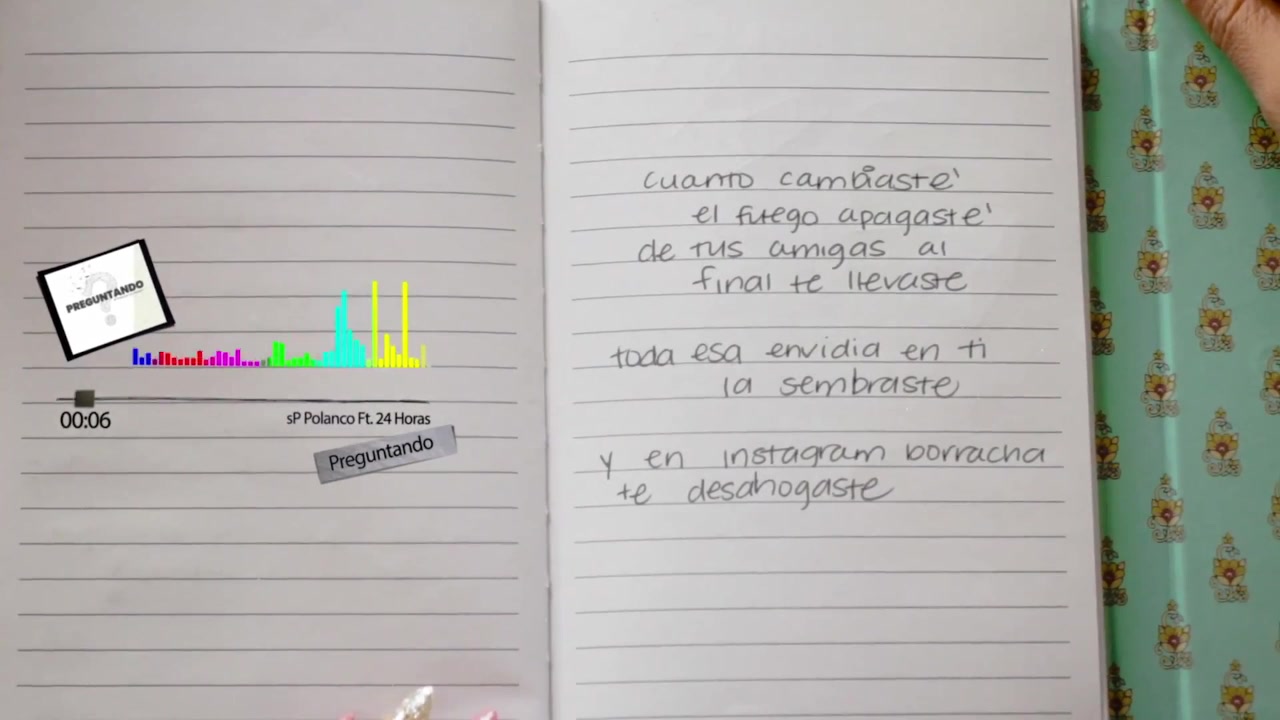 PREGUNTANDO
00:06
sP Polanco Ft. 24 Horas
Preguntando
cuanto cambiaste'
el fuego apagaste'
de tus amigas al
final te llevaste
toda esa envidia en ti
la sembraste
y en instagram borracha
te desahogaste